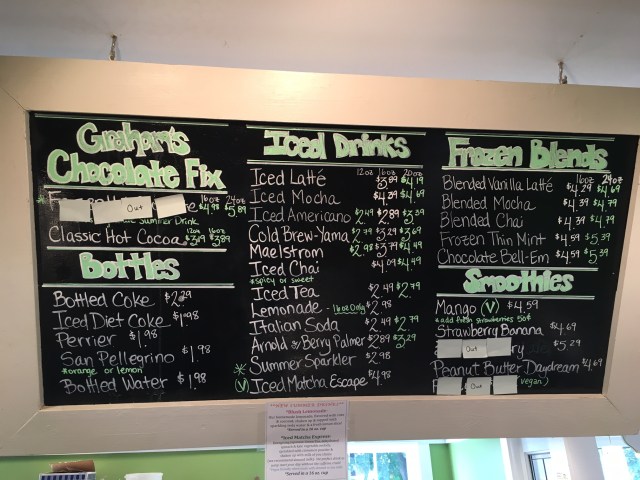 Graham's
Chocolate Fix
16oz 24oz
Out $4.98 $5.89
Summer Drink
12oz 16oz
Classic Hot Cocoa $3.19 $3.89
Bottles
Bottled Coke $2.29
Iced Diet Coke $1.98
Perrier $1.98
San Pellegrino $1.98
*orange or lemon
Bottled Water $1.98
Iced Drinks
12oz 16oz 20oz
Iced Latté $3.89 $4.19
Iced Mocha $4.39 $4.69
Iced Americano $2.49 $2.89 $3.39
Cold Brew-Yama $2.79 $3.29 $3.69
Maelstrom $2.98 $3.79 $4.49
Iced Chai $4.09 $4.49
*spicy or sweet
Iced Tea $2.49 $2.79
Lemonade - 16oz only $2.98
Italian Soda $2.49 $2.79
Arnold & Berry Palmer $2.89 $3.29
Summer Sparkler $2.98
* V Iced Matcha Escape $4.98
Frozen Blends
16oz 24oz
Blended Vanilla Latté $4.29 $4.69
Blended Mocha $4.39 $4.79
Blended Chai $4.39 $4.79
Frozen Thin Mint $4.59 $5.39
Chocolate Bell-Em $4.59 $5.39
Smoothies
Mango V $4.59
*add fresh strawberries 50¢
Strawberry Banana $4.69
Out ry $5.29
Peanut Butter Daydream $4.69
Out vegan)